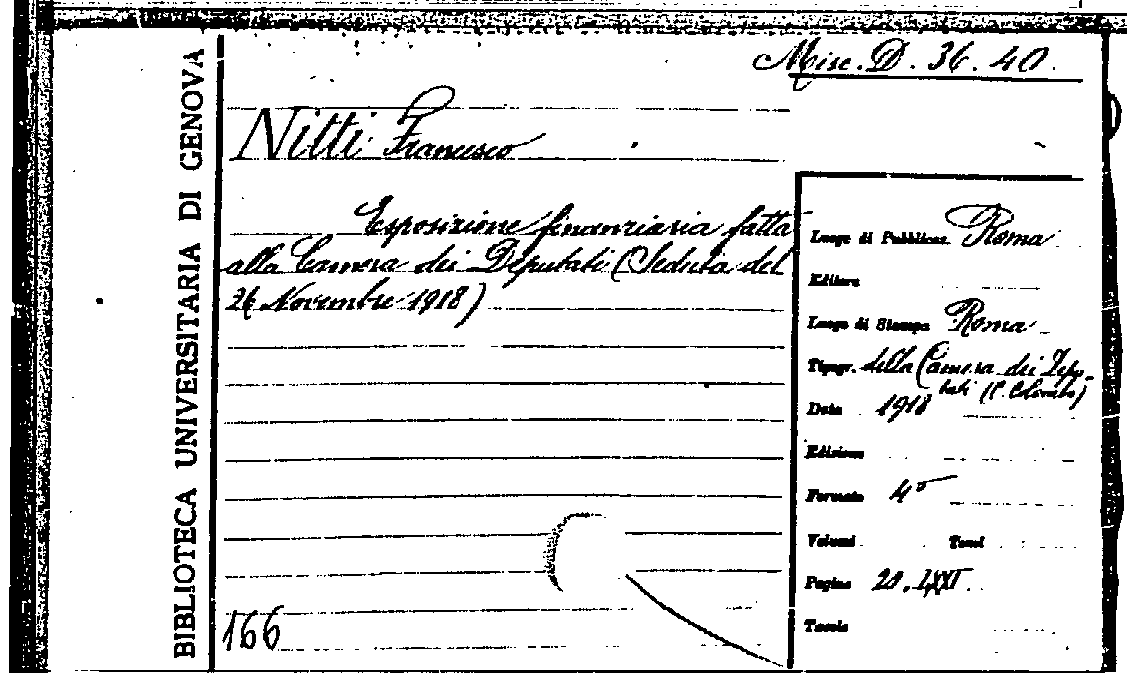 BIBLIOTECA UNIVERSITARIA DI GENOVA
Misc. D. 36. 40.
Nitti Francesco
Esposizione finanziaria fatta
alla Camera dei Deputati (Seduta del
26 Novembre 1918)
166
Luogo di Pubblicaz. Roma
Editore
Luogo di Stampa Roma
Tipogr. della Camera dei Depu-
tati (C. Colombo)
Data 1918
Edizione
Formato 4º
Volumi Tomi
Pagine 20. LXXI.
Tavole